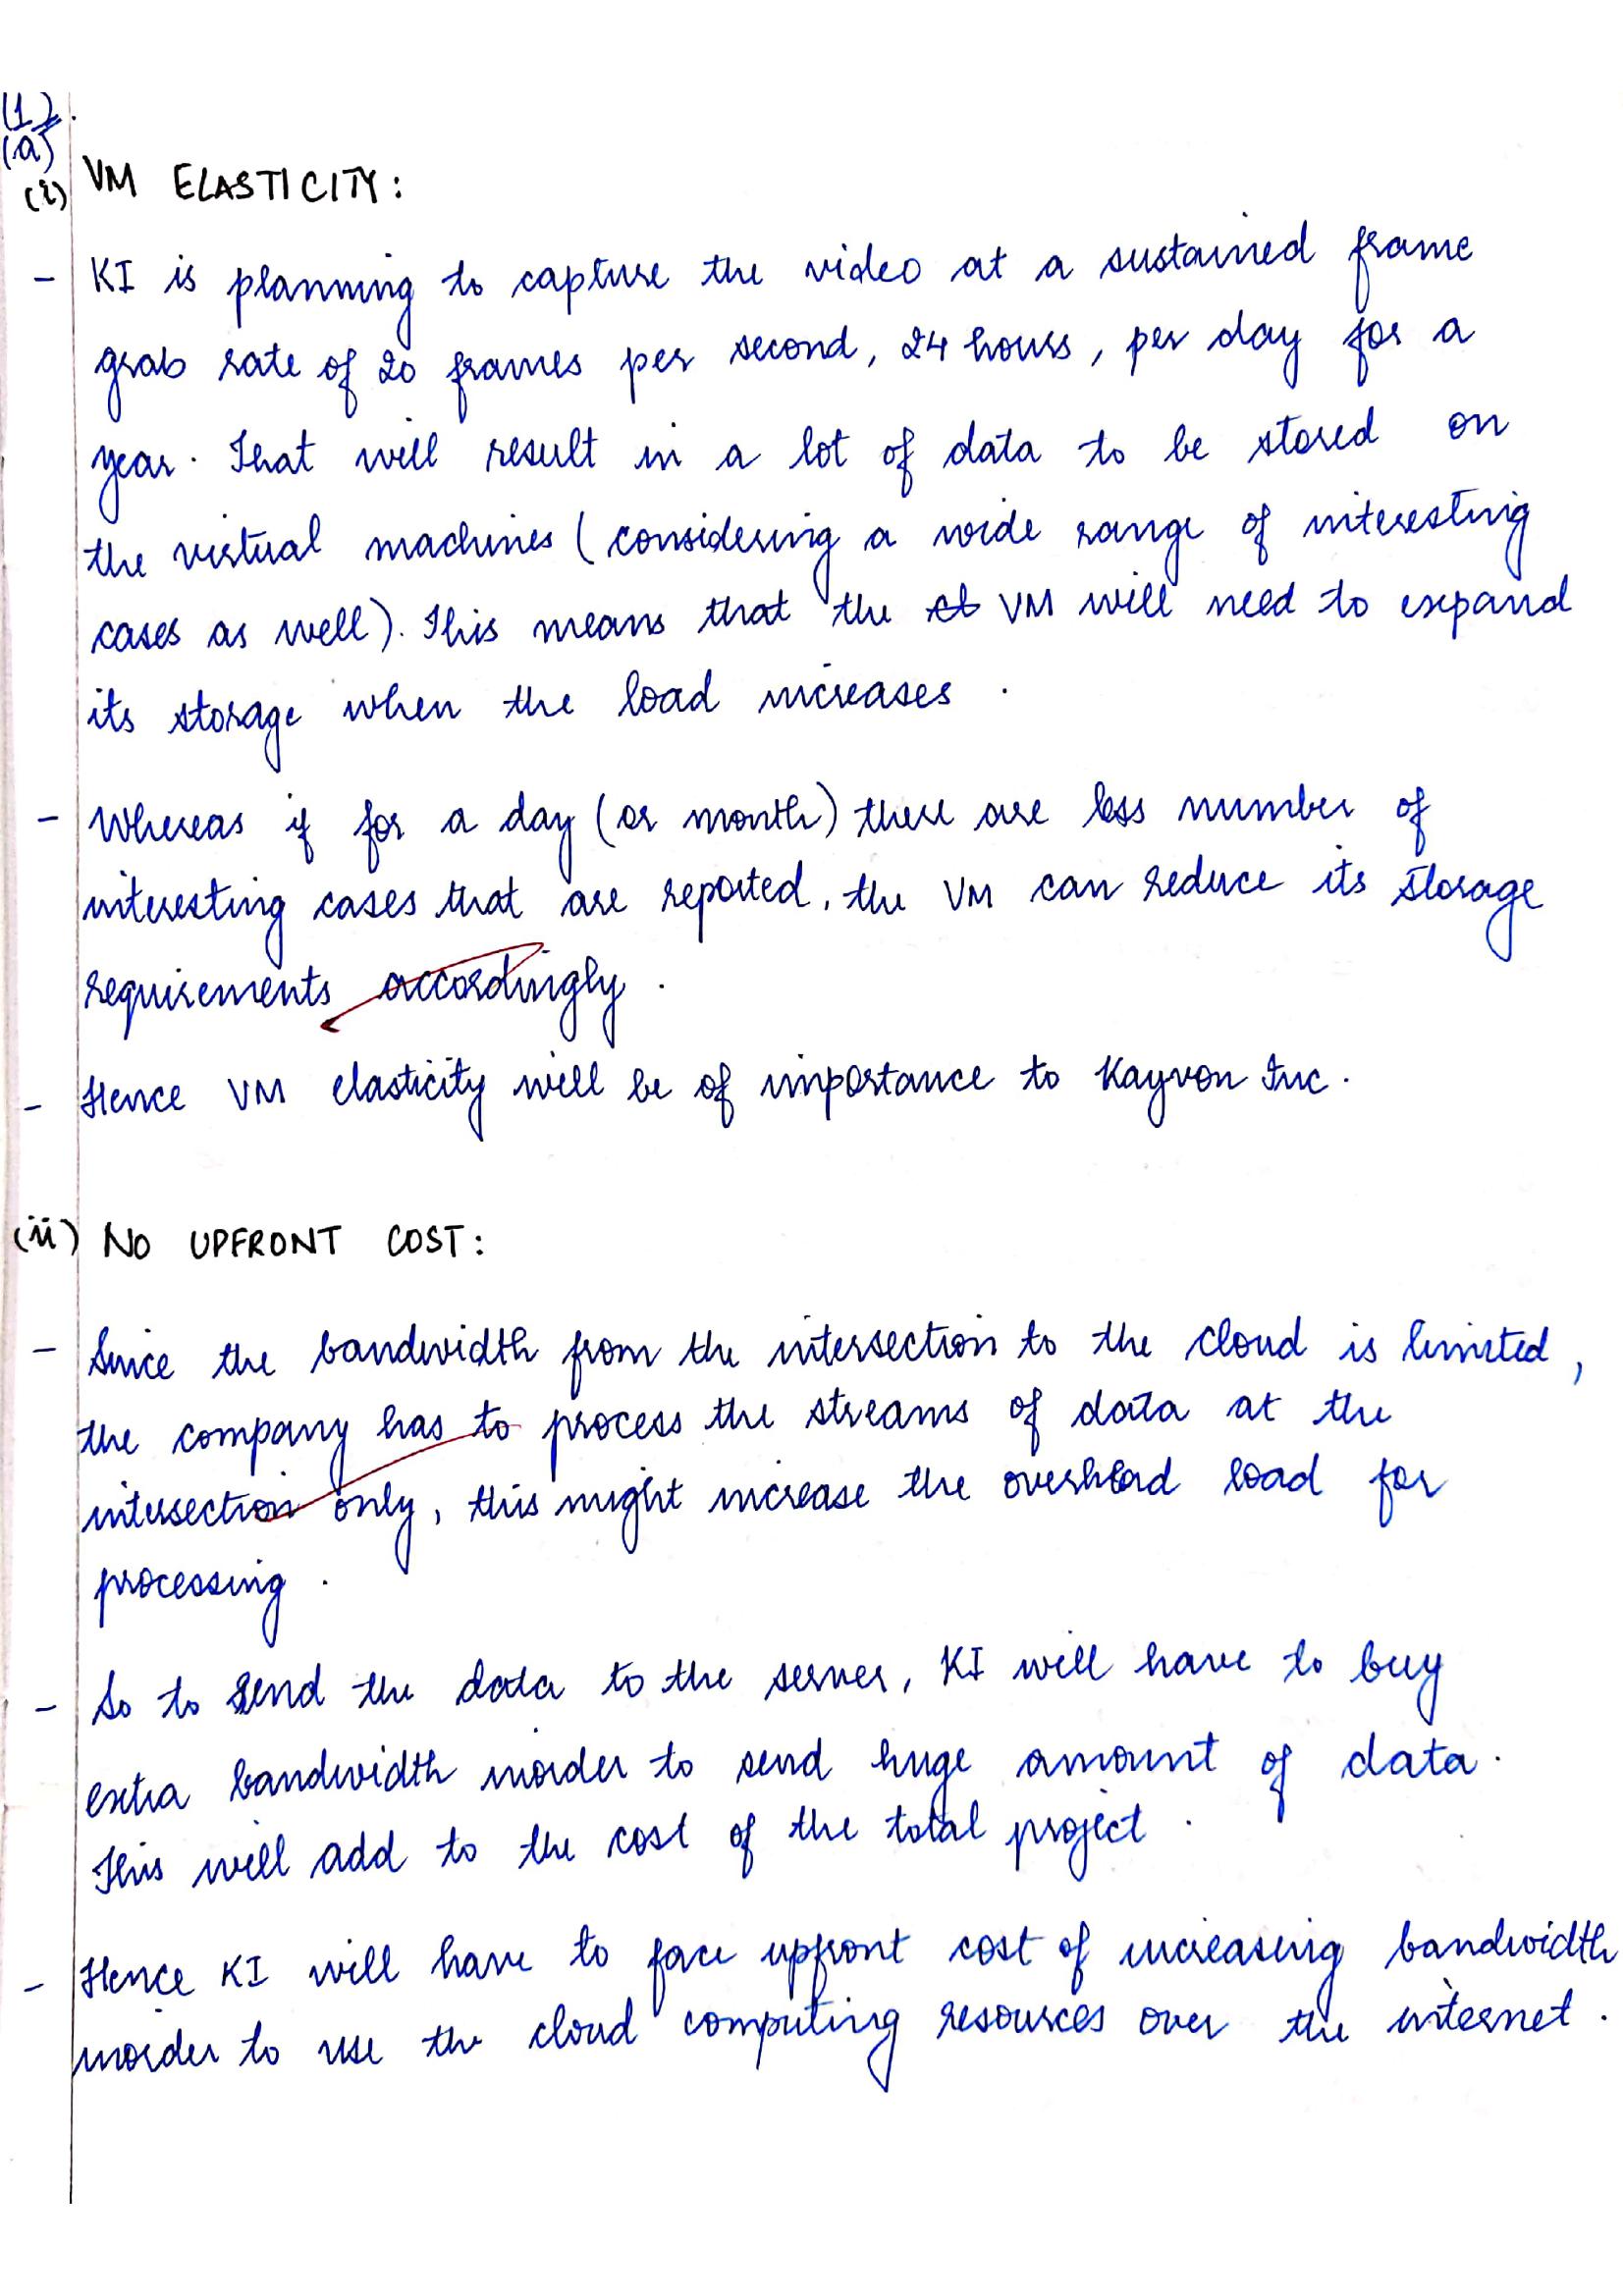 (1).
(a)
(i) VM ELASTICITY:
- KI is planning to capture the video at a sustained frame
grab rate of 20 frames per second, 24 hours, per day for a
year. That will result in a lot of data to be stored on
the virtual machines (considering a wide range of interesting
cases as well). This means that the VM will need to expand
its storage when the load increases.
- Whereas if for a day (or month) there are less number of
interesting cases that are reported, the VM can reduce its storage
requirements accordingly.
- Hence VM elasticity will be of importance to Kayvon Inc.
(ii) NO UPFRONT COST:
- Since the bandwidth from the intersection to the cloud is limited,
the company has to process the streams of data at the
intersection only, this might increase the overhead load for
processing.
- So to send the data to the server, KI will have to buy
extra bandwidth inorder to send huge amount of data.
This will add to the cost of the total project.
- Hence KI will have to face upfront cost of increasing bandwidth
inorder to use the cloud computing resources over the internet.